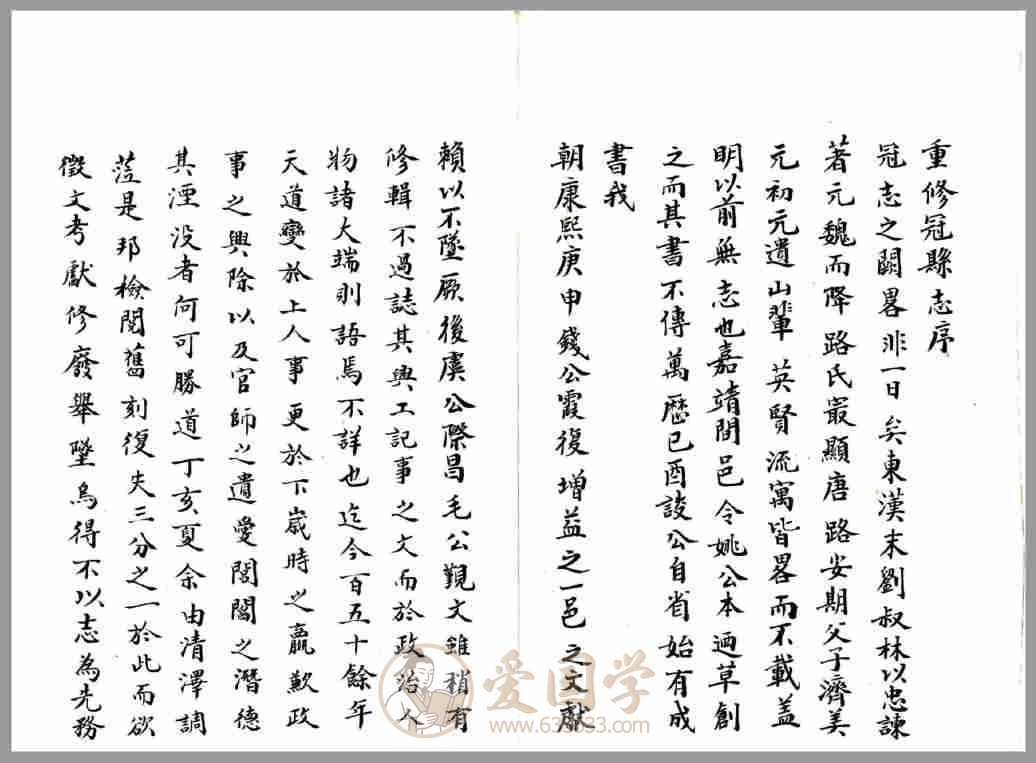 重修冠縣志序
冠志之闕畧非一日矣東漢末劉叔林以忠諫
著元魏而降路氏㝡顯唐路安期父子濟美
元初元遺山輩英賢流寓皆畧而不載蓋
明以前無志也嘉靖間邑令姚公本迺草創
之而其書不傳萬歷己酉談公自省始有成
書我
朝康熙庚申錢公霞復增益之一邑之文獻
賴以不墜厥後虞公際昌毛公覲文雖稍有
修輯不過誌其興工記事之文而於政治人
物諸大端則語焉不詳也迄今百五十餘年
天道變於上人事更於下歲時之贏歉政
事之興除以及官師之遺愛閭閻之潛德
其湮没者何可勝道丁亥夏余由清澤調
蒞是邦檢閲舊刻復失三分之一於此而欲
徵文考獻修廢舉墜烏得不以志為先務
爱国学
www.633633.com